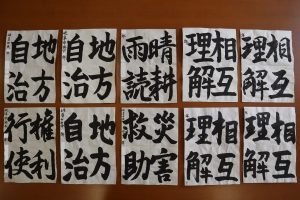 相互
理解
相互
理解
晴耕
雨読
地方
自治
地方
自治
相互
理解
相互
理解
災害
救助
地方
自治
権利
行使